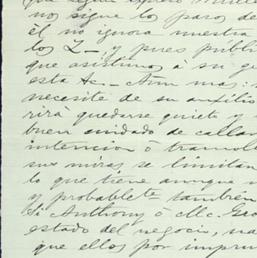 no sigue los pasos de
él no ignora nuestra
los L_, y pues publi
que asistimos á su ge
esta &c._ Aun mas:
necesite de su auxilio
rirá quedarse quieto y
buen cuidado de callar
intencion ó tramo
sus miras se limitan
lo que tiene aunque
y probablete. tambien
Si Anthony ó Mc. Gra
estado del negocio, na
que ellos por impru